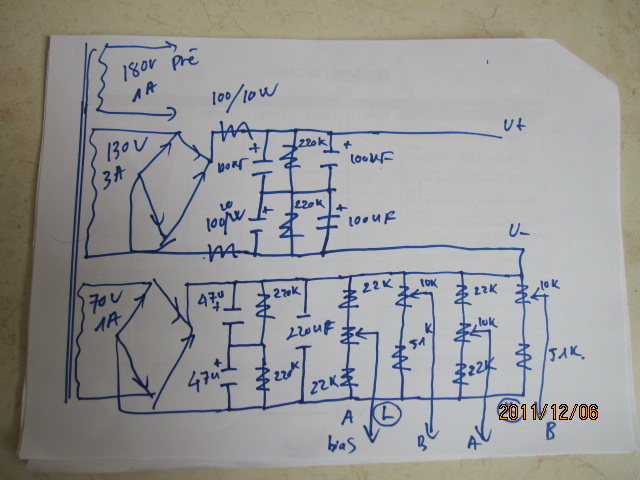 180V Pré
1A
100/10W
U+
130V
3A
220K
+
+
100uF
100uF
10
100/W
+
220K
+
100uF
U-
70V
1A
47u
+
220K
220uF
22K
10K
22K
10K
10K
51K
51K.
47u
+
220K
22K
22K
A
L
2011/12/06
bias
B
A
B